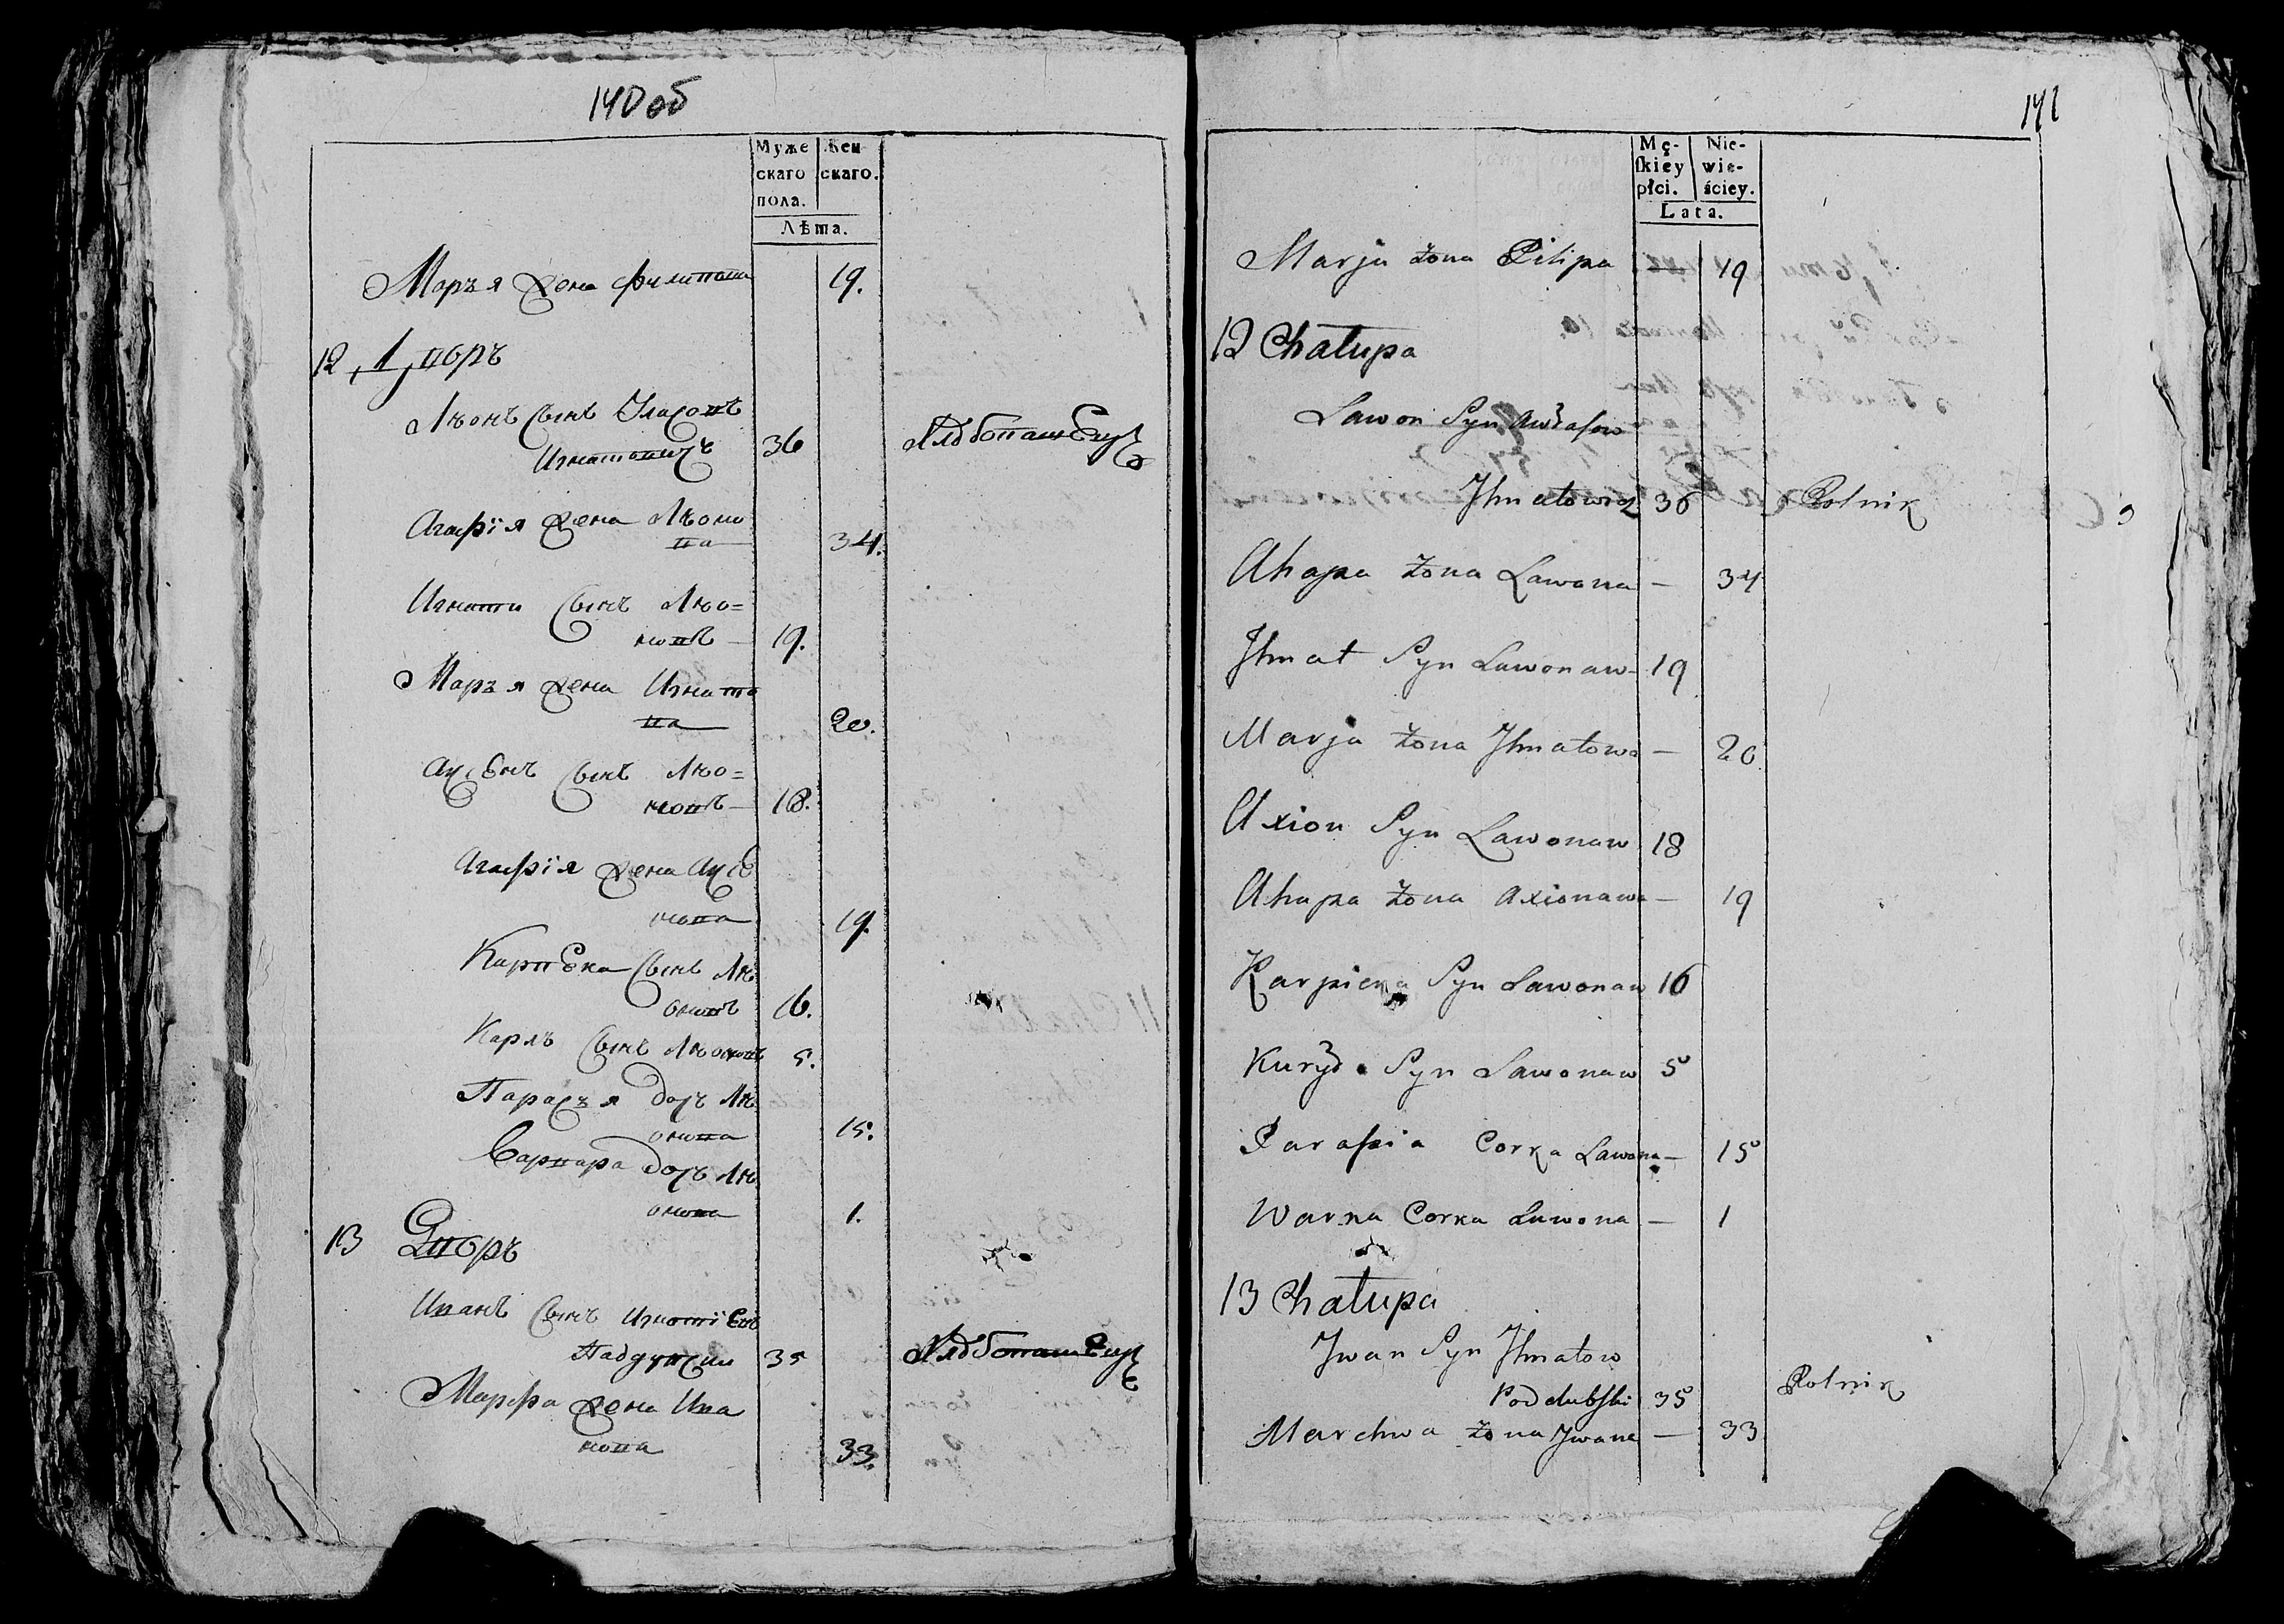 140 об
Муже
скаго
пола.
Жен
скаго.
Лѣта.
Марья жена Филипова 19.
12 дворъ
Лвонъ сынъ
Игнатовичъ 36 Хлѣбопашецъ
Агафія жена Лвоно
ва 34.
Игнати сынъ Лво=
новъ 19.
Марья жена Игнато
ва 20.
Ауксенъ сынъ Лво=
новъ 18.
Агафія женаАуксе
нова 19.
Карпека сынъ Лв
оновъ 16.
сынъ Лвоновъ 5.
Парасья дочь Лв
онова 15.
Варвара дочь Лв
онова 1.
13 Дворъ
Иванъ сынъ Игнатіевъ
35 Хлѣбопашецъ
Марфа жена Ива
нова 33.
141
Mę-
skiey
płci.
Nie-
wie-
ściey.
Lata.
Marja żona Pilipa — 19
12 Chałupa
Lawon Syn
Jhnatowicz 36 Rolnik
Ahapa żona Lawona — 34
Jhnat Syn Lawonaw 19
Marja żona Jhnatowa — 20
Axion Syn Lawonaw 18
Ahapa żona Axionawa — 19
Karpieka Syn Lawonaw 16
Syn Lawonaw 5
Parasia Corka Lawona — 15
Warka Corka Lawona — 1
13 Chałupa
Jwan Syn Jhnatow
Poddubski 35 Rolnik
Marchwa żona Jwana — 33